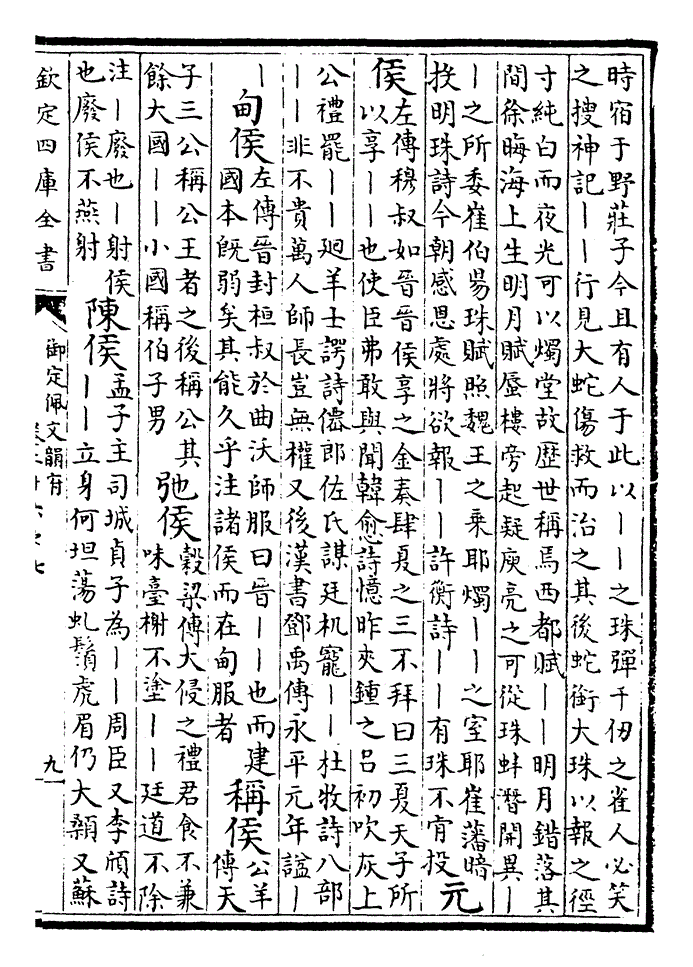 時宿于野莊子今且有人于此以丨丨之珠彈千仞之雀人必笑
之搜神記丨丨行見大蛇傷救而治之其後蛇銜大珠以報之徑
寸純白而夜光可以燭堂故歷世稱焉西都賦丨丨明月錯落其
間徐晦海上生明月賦蜃樓旁起疑庾亮之可從珠蚌潛開異丨
丨之所委崔伯昜珠賦照魏王之乗耶燭丨丨之室耶崔藩暗
投明珠詩今朝感恩處將欲報丨丨許衡詩丨丨有珠不肯投
元
侯
左傳穆叔如晉晉侯享之金奏肆夏之三不拜曰三夏天子所
以享丨丨也使臣弗敢與聞韓愈詩憶昨夾鍾之吕初吹灰上
公禮罷丨丨廻羊士諤詩儤郎佐氏謀廷机寵丨丨杜牧詩八部
丨丨非不貴萬人師長豈無權又後漢書鄧禹傳永平元年諡丨
丨
甸侯
左傳晉封桓叔於曲沃師服曰晉丨丨也而建
國本旣弱矣其能久乎注諸侯而在甸服者
稱侯
公羊
傳天
子三公稱公王者之後稱公其
餘大國丨丨小國稱伯子男
弛侯
穀梁傳大侵之禮君食不兼
味臺榭不塗丨丨廷道不除
注丨廢也丨射侯
也廢侯不燕射
陳侯
孟子主司城貞子為丨丨周臣又李頎詩
丨丨立身何坦蕩虬鬚虎眉仍大顙又蘇
欽定四庫全書
御定佩文韻府
九